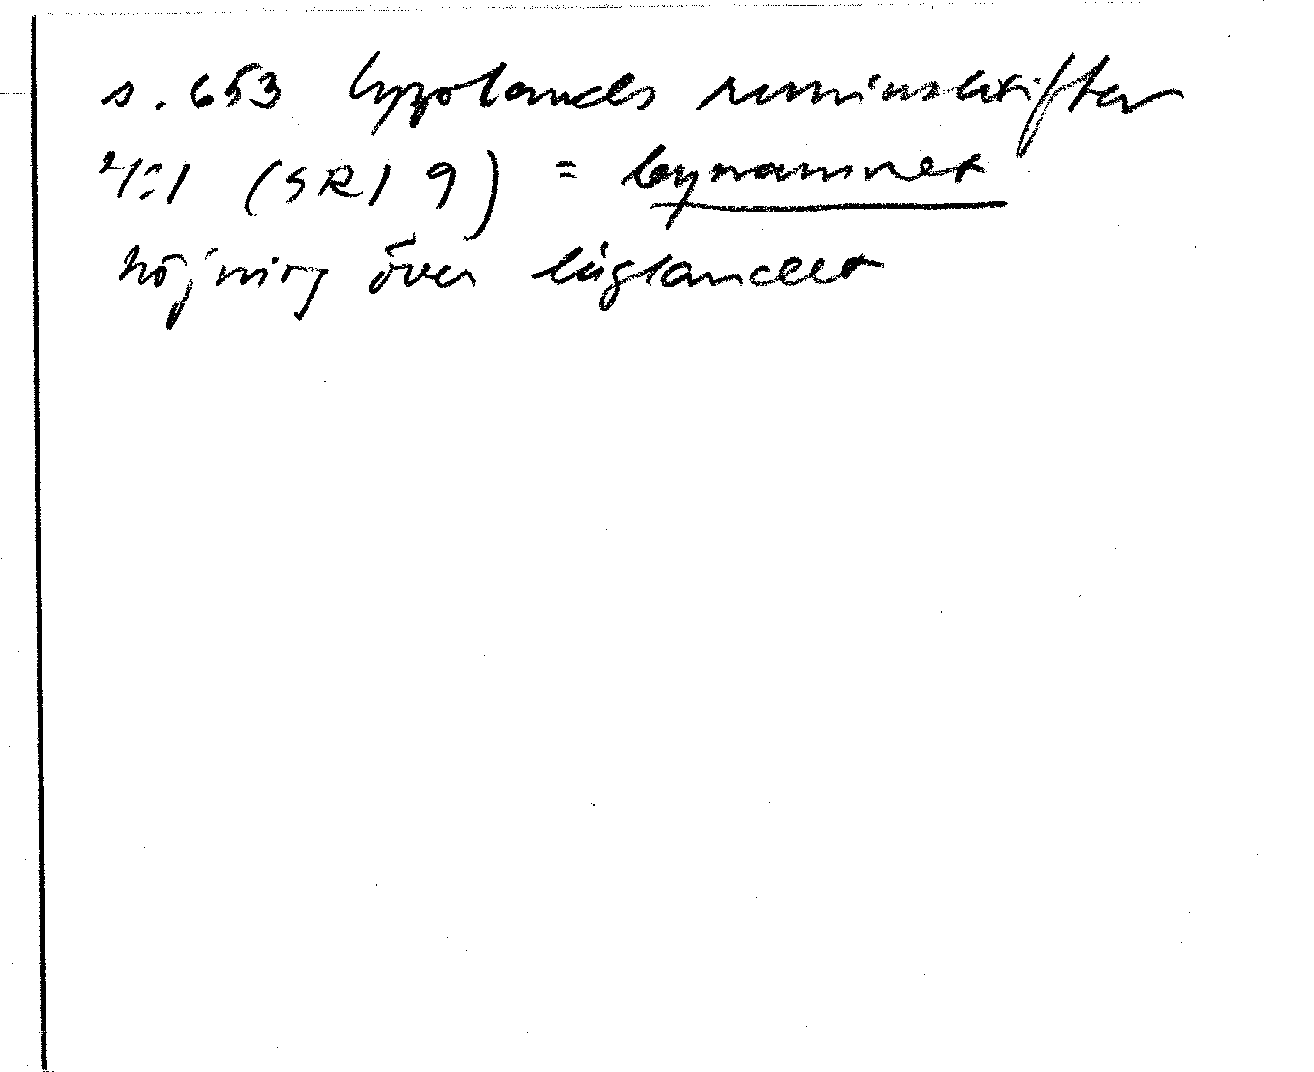 s. 653 Upplands runinskrifter
4:1 (SRI 9) = bynamnet
höjning över låglandet